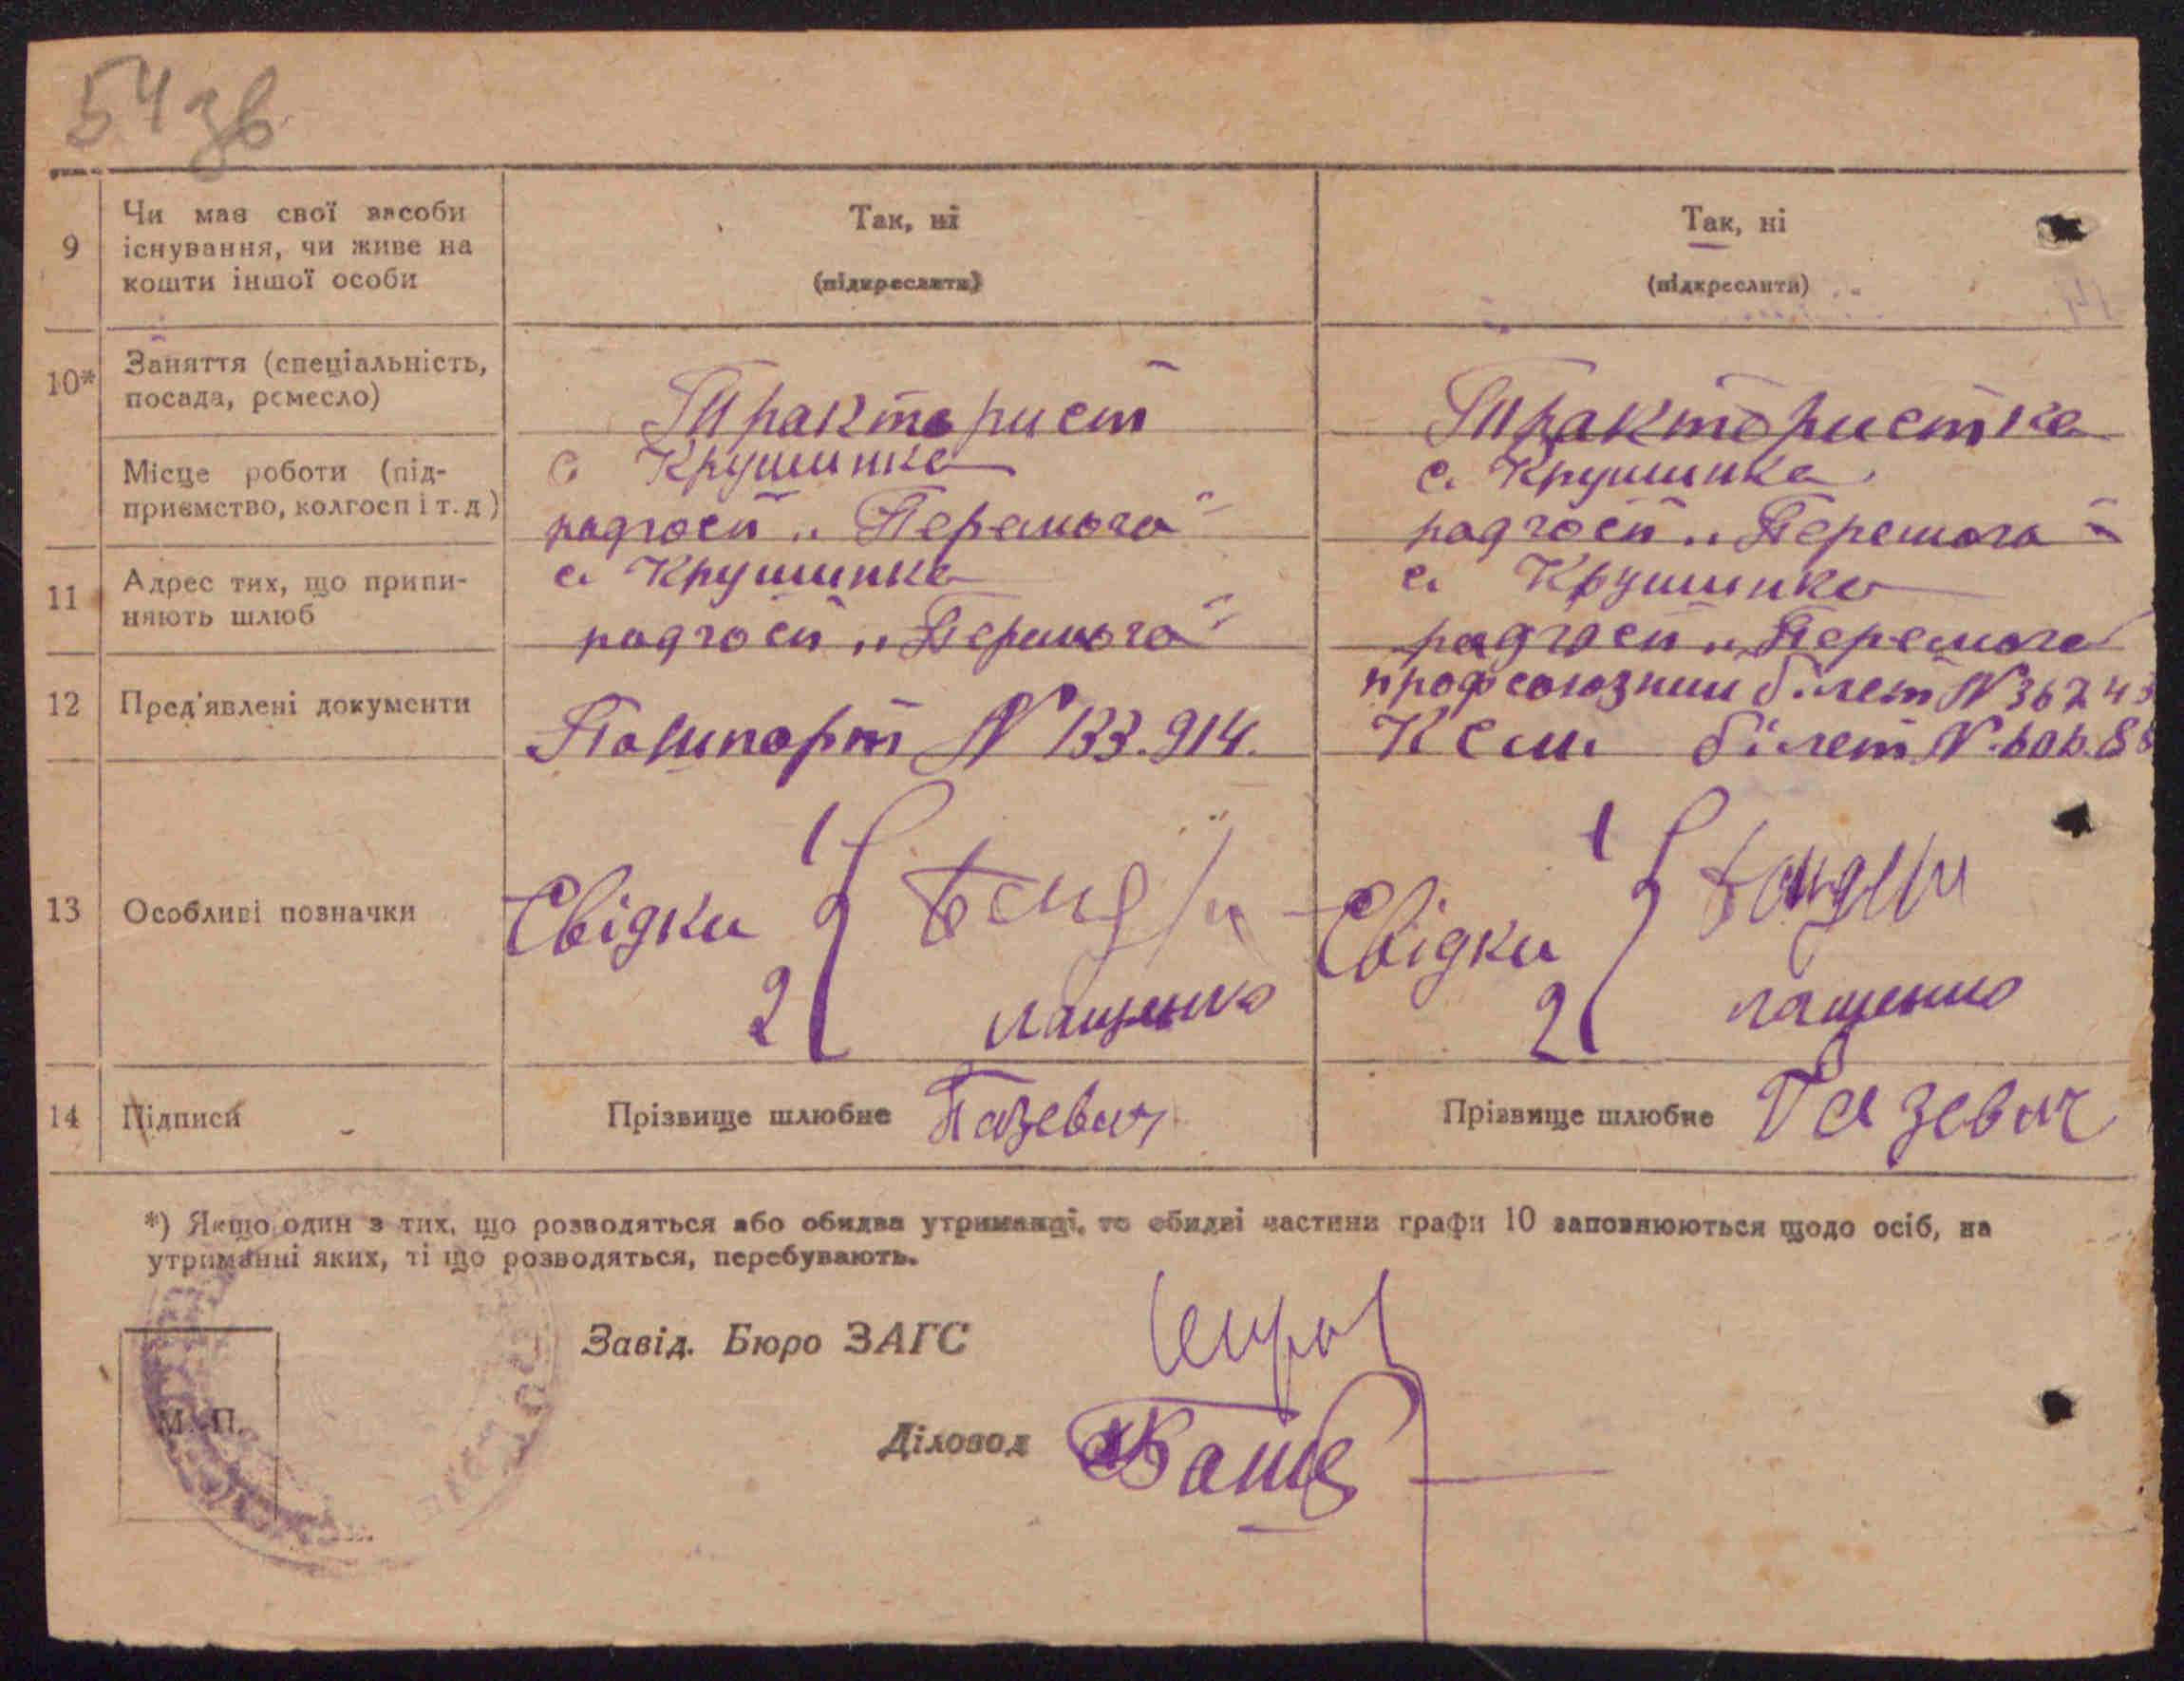 54 зв
9
Чи має свої засоби
існування, чи живе на
кошти іншої особи
Так, ні
(підкреслити)
Так, ні
(підкреслити)
10*
Заняття (спеціальність,
посада, ремесло)
Тракторист
Трактористка
Місце роботи (під-
приємство, колгосп і т. д.)
с Крушинка
радгосп „Перемога"
с. Крушинка
радгосп „Перемога"
11
Адрес тих, що припи-
няють шлюб
с. Крушинка
радгосп „Перемога"
с. Крушинка
радгосп „Перемога"
12
Пред'явлені документи
Пашпорт № 133.914.
профсоюзний білет № 36243
Ксм. білет №
13
Особливі позначки
Свідки
1
2
Лащенко
Свідки
1
2
Лащенко
14
Підписи
Прізвище шлюбне
Прізвище шлюбне
*) Якщо один з тих, що розводяться або обидва утриманці, то обидві частини графи 10 заповнюються щодо осіб, на
утриманні яких, ті що розводяться, перебувають.
Завід. Бюро ЗАГС
Діловод
М. П.